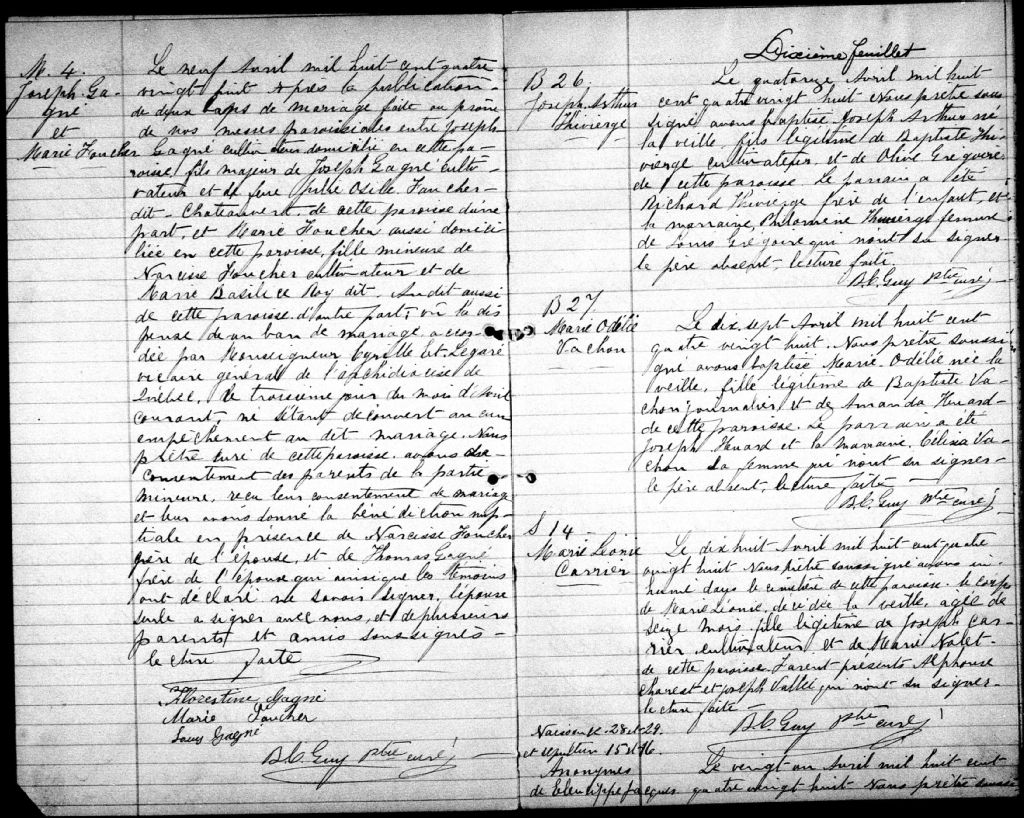 M. 4.
Joseph Ga-
gné
et
Marie Foucher
Le neuf Avril mil huit cent quatre
vingt huit Après la publication
de deux bans de mariage faite au prône
de nos messes paroissiales entre Joseph
Gagné cultivateur domicilié en cette pa-
roisse, fils majeur de Joseph Gagné culti-
vateur et de feue Julie Osile Foucher-
dit-Chateauvert, de cette paroisse d'une
part, et Marie Foucher aussi domici-
liée en cette paroisse, fille mineure de
Narcisse Foucher cultivateur et de
Marie Basilice Roy dit Audit aussi
de cette paroisse d'autre part; vu la dis
pense d'un ban de mariage accor
dée par Monseigneur Cyrille Et. Legaré
vicaire général de l'archidiocèse de
Québec, le troisième jour du mois d'Avril
courant, ne s'étant découvert aucun
empêchement au dit mariage. Nous
prêtre curé de cette paroisse avons du
consentement des parents de la partie
mineure, reçu leur consentement de mariage
et leur avons donné la bénédiction nup
tiale en présence de Narcisse Foucher
père de l'épouse, et de Thomas Gagné
frère de l'époux qui ainsi que les témoins
ont déclaré ne savoir signer, l'épouse
seule a signer avec nous, et de plusieurs
parents et amis soussignés -
lecture faite
Florestine Gagné
Marie Foucher
Louis Gagné
B.C. Guy Ptre curé
Dixième feuillet
B 26.
Joseph Arthur
Thivierge
Le quatorze Avril mil huit
cent quatre vingt huit Nous prêtre sous-
signé avons baptisé Joseph Arthur né
la veille, fils légitime de Baptiste Thi-
vierge cultivateur et de Olive Grégoire
de cette paroisse. Le parrain a été
Richard Thivierge frère de l'enfant, et
la marraine, Philomène Thivierge femme
de Louis Grégoire qui n'ont su signer
le père absent, lecture faite.
B.C. Guy Ptre curé
B 27.
Marie Odélie
Vachon
Le dix sept Avril mil huit cent
quatre vingt huit. Nous prêtre soussi-
gné avons baptisé Marie Odélie née la
veille, fille légitime de Baptiste Va-
chon journalier et de Amanda Huard
de cette paroisse. Le parrain a été
Joseph Huard et la marraine, Célina Va-
chon sa femme qui n'ont su signer
le père absent, lecture faite
B.C. Guy Ptre curé
S 14
Marie Léonie
Carrier
Le dix huit Avril mil huit cent quatre
vingt huit Nous prêtre soussigné avons in-
humé dans le cimetière de cette paroisse le corps
de Marie Léonie, décédée la veille, agée de
seize mois fille légitime de Joseph Car-
rier cultivateur et de Marie Nolet
de cette paroisse. Furent présents Alphonse
Charest et Joseph Vallée qui n'ont su signer
lecture faite
B.C. Guy Ptre curé
Naissance 28 et 29.
et sépulture 15 et 16.
Anonymes
de Eleucippe Jacques
Le vingt un Avril mil huit cent
quatre vingt huit Nous prêtre soussi